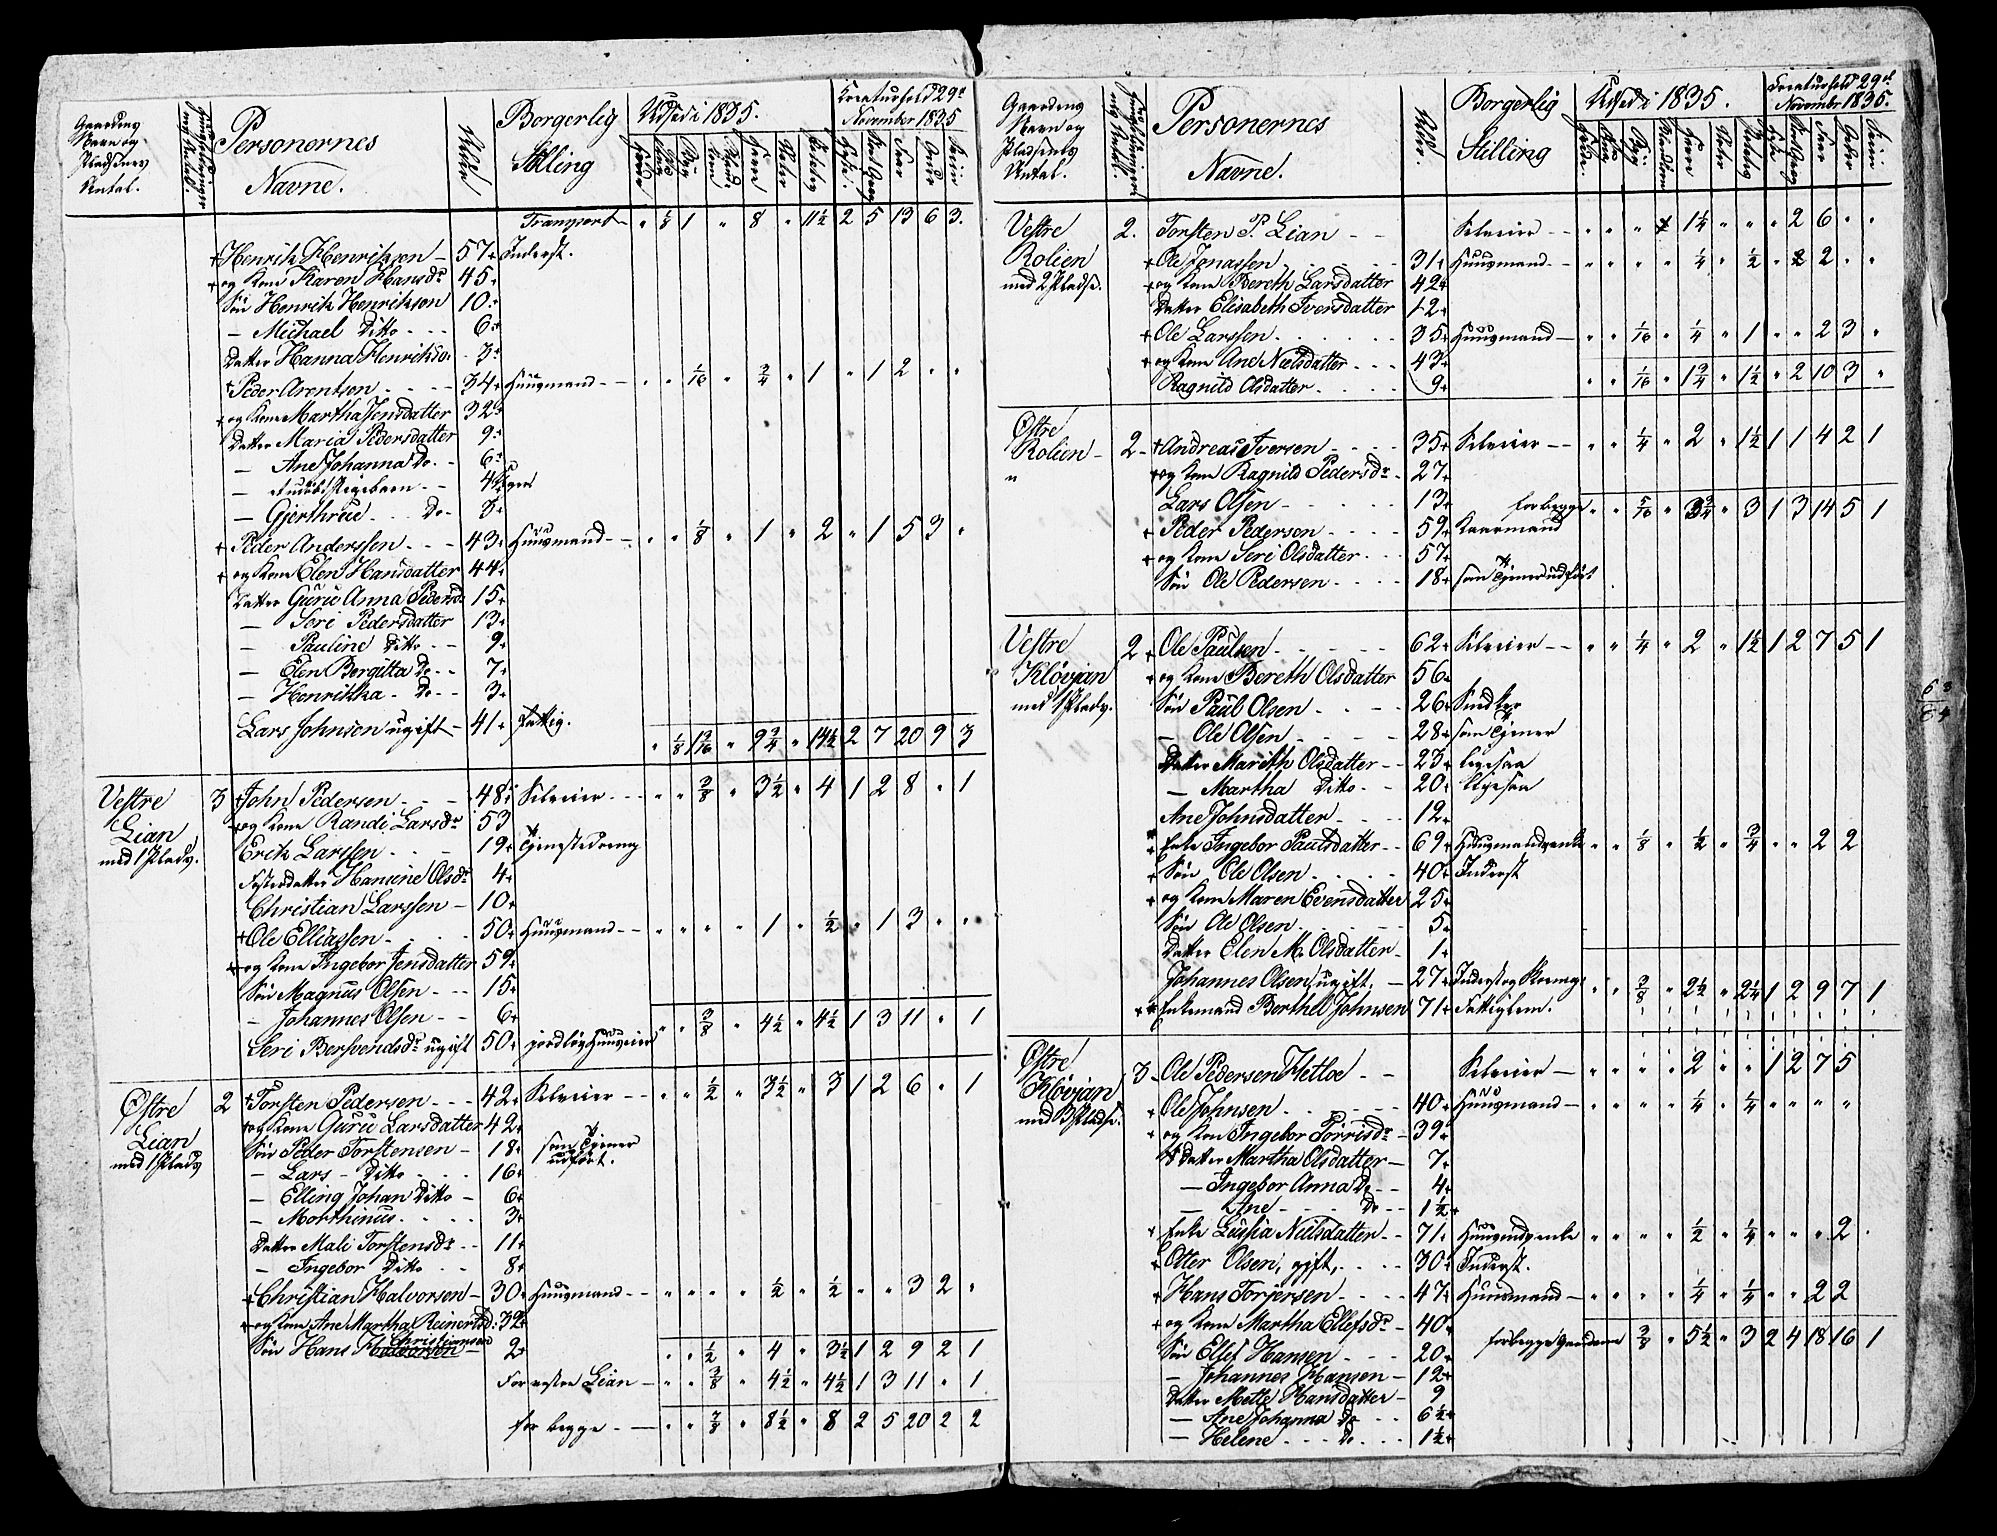 Gaardens Navn og Pladsenes Antal.
Personernes Navne.
Alder
Borgerlig Stilling
Udsæd i 1835.
Kreaturhold 29de November 1835
Transport " 1/8 1 " 8 " 11 1/2 2 5 13 6 3.
+ Henrik Henriksen 57 Inderst.
+ og Kone Karen Hansdr 45
Søn Henrik Henriksen 10
— Michael Ditto 6
Datter Hanna Henriksd. 3
+ Peder Arentsen 34 Huusmand " " 1/16 " 3/4 " 1 " 1 2 " "
+ og Kone Martha Jensdatter 32
Datter Maria Pedersdatter 9
— Ane Johanna Do. 6
— et udøbt Pigebarn 4 Uger
— Gjerthrue Do 3
+ Peder Anderssen 43 Huusmand " " 1/8 " 1 " 2 " 1 5 3 "
+ og Kone Elen Hansdatter 44
Datter Guru Anna Pedersd 15
— Seri Pedersdatter 13
— Pauline Ditto 9
— Elen Bergitta Do 7
— Henrikka Do 3
Lars Johnsen ugift 41 Fattig.
" 1/8 1 3/16 " 9 3/4 " 14 1/2 2 7 20 9 3
Vestre Lian med 1 Plads. 3 + John Pedersen 48 Selveier " " 3/8 " 3 1/2 " 4 1 2 8 " 1
+ og Kone Randi Larsdr 53
Erik Larssen 19 Tjenestedreng
Fosterdatter Hanine Olsdr 4
Christian Larssen 10
+ Ole Elliassen 50 Huusmand " " " " 1 " 1/2 " 1 3 " "
+ og Kone Ingebor Jensdatter 59
Søn Magnus Olsen 15
— Johannes Olsen 6
" " 3/8 " 4 1/2 " 4 1/2 1 3 11 " 1
Seri Bersvendsdr ugift 50 jordløs Huuseier
Østre Lian med 1 Plads 2 + Torsten Pedersen 42 Selveier " " 1/2 " 3 1/2 " 3 1 2 6 " 1
+ og Kone Guru Larsdatter 42
Søn Peder Torstensen 18 som Tjener udført.
— Lars Ditto 16
— Elling Johan Ditto 6
— Morthinus 3
Datter Mali Torstensdr 11
— Ingebor Ditto 8
+ Christian Halvorsen 30 Huusmand " " " " 1/2 " 1/2 " " 3 2 "
+ og Kone Ane Martha Reinertsd: 32
Søn Hans Halvorsen Christiansen 2 " " 1/2 " 4 " 3 1/2 1 2 9 2 1
For vestre Lian " " 3/8 " 4 1/2 " 4 1/2 1 3 11 " 1
for begge " " 7/8 " 8 1/2 " 8 2 5 20 2 2
Gaardens Navn og Pladsenes Antal.
Personernes Navne.
Alder.
Borgerlig Stilling
Udsæd i 1835.
Kreaturhold 29de November 1835.
Vestre Rolien med 2 Pladse. 2. Torsten P. Lian Selveier " " " 1 1/4 " " " 2 6 " "
+ Ole Jonassen 31 Huusmand " " " " 1/4 " 1/2 " 2 2 " "
+ og Kone Bereth Larsdatter 42
Datter Elisabeth Iversdatter 12
+ Ole Larssen 35 Huusmand " " 1/16 " 1/4 " 1 " " 2 3 "
+ og Kone Ane Nielsdatter 43
Ragnild Olsdatter 9 " " 1/16 " 1 3/4 " 1 1/2 " 2 10 3 "
Østre Rolien 2 + Andreas Iversen 35 Selveier " " 1/4 " 2 " 1 1/2 1 1 4 2 1
+ og Kone Ragnild Pedersdr 27
Lars Olsen 13 for begge " " 5/16 " 3 3/4 " 3 1 3 14 5 1
+ Peder Pedersen 59 Kaarmand
+ og Kone Seri Olsdatter 57
Søn Ole Pedersen 18 som Tjener udført
Vestre Kløvjan med 1 Plads. 2 + Ole Paulsen 62 Selveier " " 1/4 " 2 " 1 1/2 1 2 7 5 1
+ og Kone Bereth Olsdatter 56
Søn Paul Olsen 26 Snedker
— Ole Olsen 28 som Tjener
Datter Marith Olsdatter 23 ligesaa
— Martha Ditto 20 ligesaa
Ane Johnsdatter 12
+ Enke Ingebor Paulsdatter 69 Huusmandsenke " " 1/8 " 1/2 " 3/4 " " 2 2
+ Søn Ole Olsen 40 Inderst
+ og Kone Maren Evensdatter 25
Søn Ole Olsen 5
Datter Elen M. Olsdatter 1
Johannes Olsen, ugift, 27 Inderst og Skomag " " 3/8 " 2 1/2 " 2 1/4 1 2 9 7 1
+ Enkemand Berthel Johnsen 71 Fattiglem.
Østre Kløvjan med 3 Pladse. 3 Ole Pedersen Fletloe Selveier " " " " 2 " " 1 2 7 5
+ Ole Johnsen 40 Huusmand " " " " 1/4 " 1/4 " " " "
+ og Kon Ingebor Torrisdr 39
Datter Martha Olsdatter 7
— Ingebor Anna Do 4
— Ane Do 1 1/2
+ Enke Lusia Nielsdatter 71 Huusmdsenke " " " " 1/2 " 1/4 " " " 2
Otter Olsen, gift, 30 Inderst.
+ Hans Torjersen 47 Huusmand " " " " 1/4 " 1/4 " " 2 2
+ og Kone Martha Ellefsdr 40
for begge Gaardene 3/8 " 5 1/2 " 3 2 4 18 16 1
Søn Ellef Hansen 20
— Johannes Hansen 12
Datter Mette Hansdatter 9
— Ane Johanna Do 6 1/2
— Helene Do 1 1/2